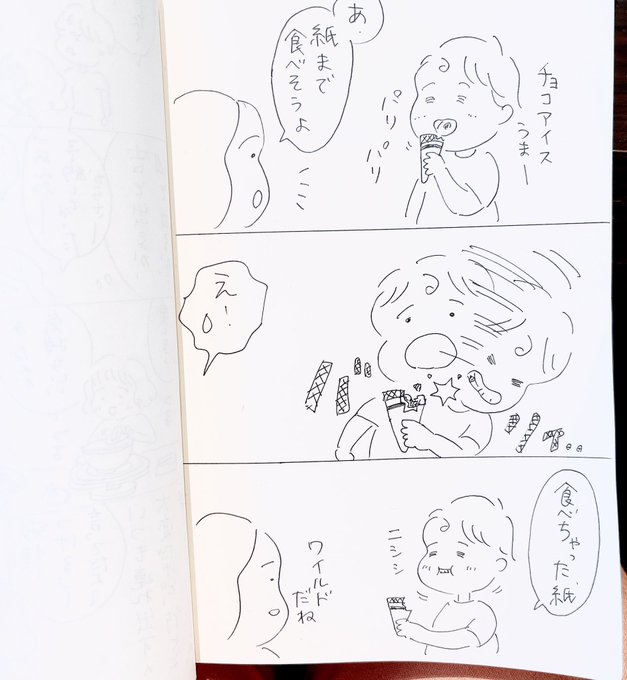 チョコアイス
うまー
パリ
パリ
あ.
紙まで
食べそうよ
え!
食べちゃった、紙
ニシシ
ワイルド
だね